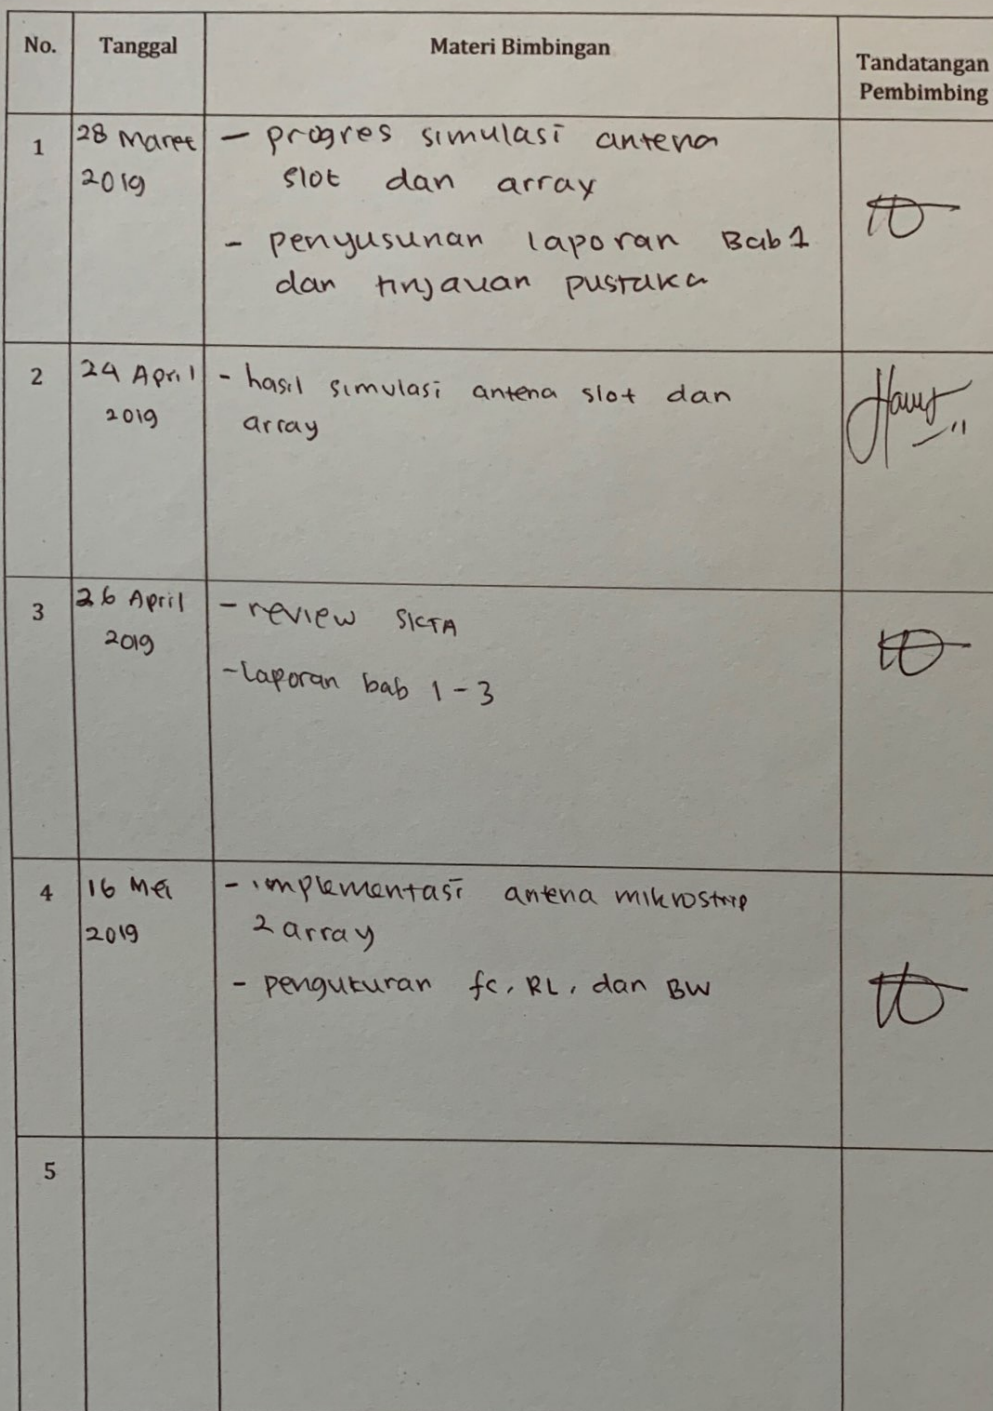 No. Tanggal Materi Bimbingan Tandatangan
Pembimbing
1 28 Maret - progres simulasi antena
2019 slot dan array
- penyusunan laporan Bab 1
dan tinjauan pustaka
2 24 April - hasil simulasi antena slot dan
2019 array
3 26 April - review SKTA
2019
- laporan bab 1 - 3
4 16 Mei - implementasi antena mikrostrip
2019 2 array
- pengukuran fc, RL, dan BW
5